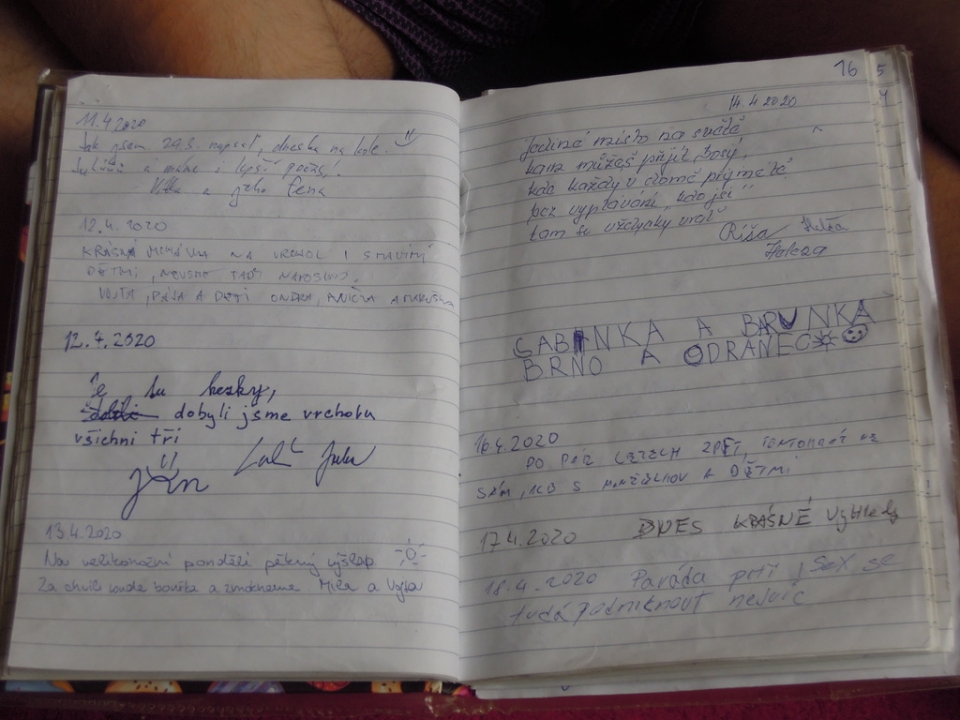 11.4.2020
Jak jsem 29.3. napsal, dneska na kole.
a máme i lepší počasí!
a jeho žena
12.4.2020
KRÁSNÁ NA VRCHOL I S MALÝMI
DĚTMI,
VOJTA, PÁJA A DĚTI ONDRA, ANIČKA A
12.4.2020
Je tu hezky,
dobyli jsme vrcholu
všichni tři
Jan
13.4.2020
Na velikonoční pondělí pěkný výšlap
Za chvíli bude bouřka a zmokneme Míša a
16 5
14.4.2020
Jediné místo na světě,
kam můžeš přijít bosý,
kde každý v domě přijme tě
bez vyptávání, kdo jsi
tam se vždycky vrať
Ríša
Helena
SABINKA A BARUNKA
BRNO A ODRANEC
16.4.2020
PO PÁR LETECH ZPĚT, TENTOKRÁT NE
SÁM, ALE S MANŽELKOU A DĚTMI
17.4.2020 DNES KRÁSNÉ VÝHLEDY
18.4.2020 Paráda
tudá podniknout nejvíc